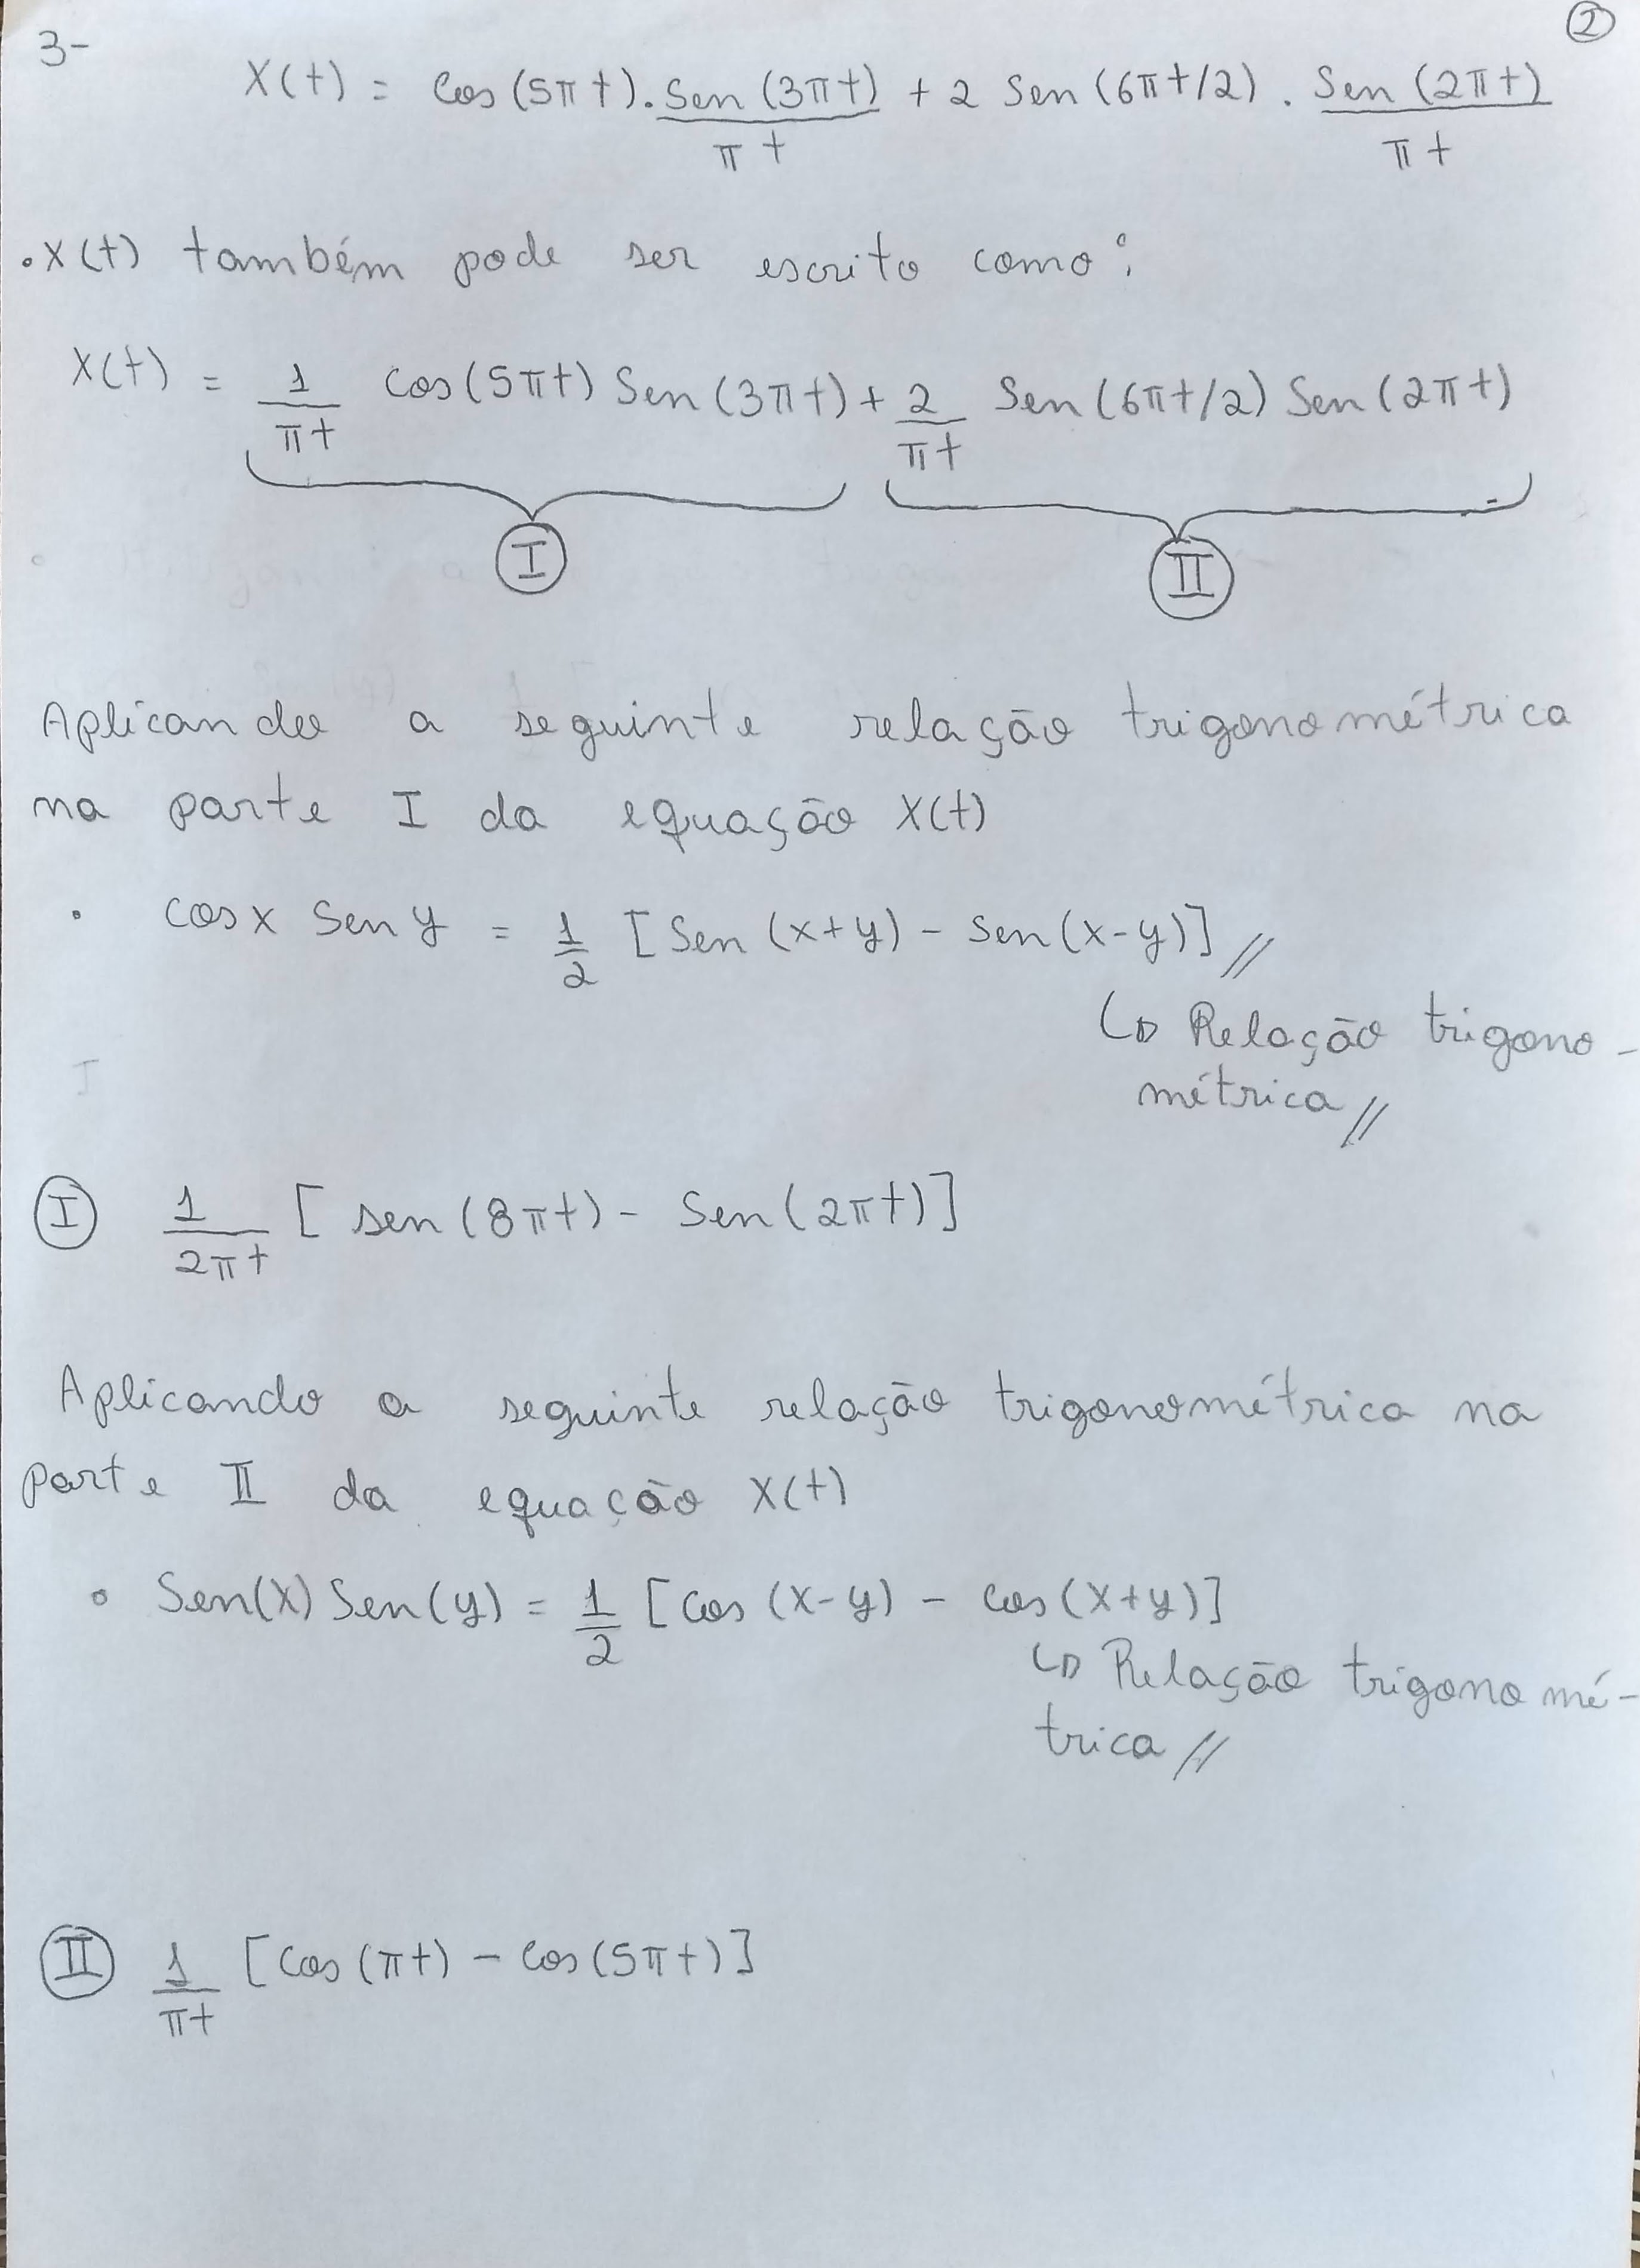 ②
3-
X(t) = Cos(5πt).Sen(3πt)/πt + 2 Sen(6πt/2) . Sen(2πt)/πt
.X(t) também pode ser escrito como:
X(t) = 1/πt Cos(5πt) Sen(3πt) + 2/πt Sen(6πt/2) Sen(2πt)
I II
Aplicando a seguinte relação trigonométrica
na parte I da equação X(t)
• cosx Sen y = 1/2 [Sen (x+y) - Sen(x-y)]//
↳ Relação trigono-
métrica//
I 1/2πt [sen(8πt) - Sen(2πt)]
Aplicando a seguinte relação trigonométrica na
parte II da equação X(t)
• Sen(x) Sen(y) = 1/2 [Cos (x-y) - Cos(x+y)]
↳ Relação trigonomé-
trica//
II 1/πt [Cos(πt) - Cos(5πt)]